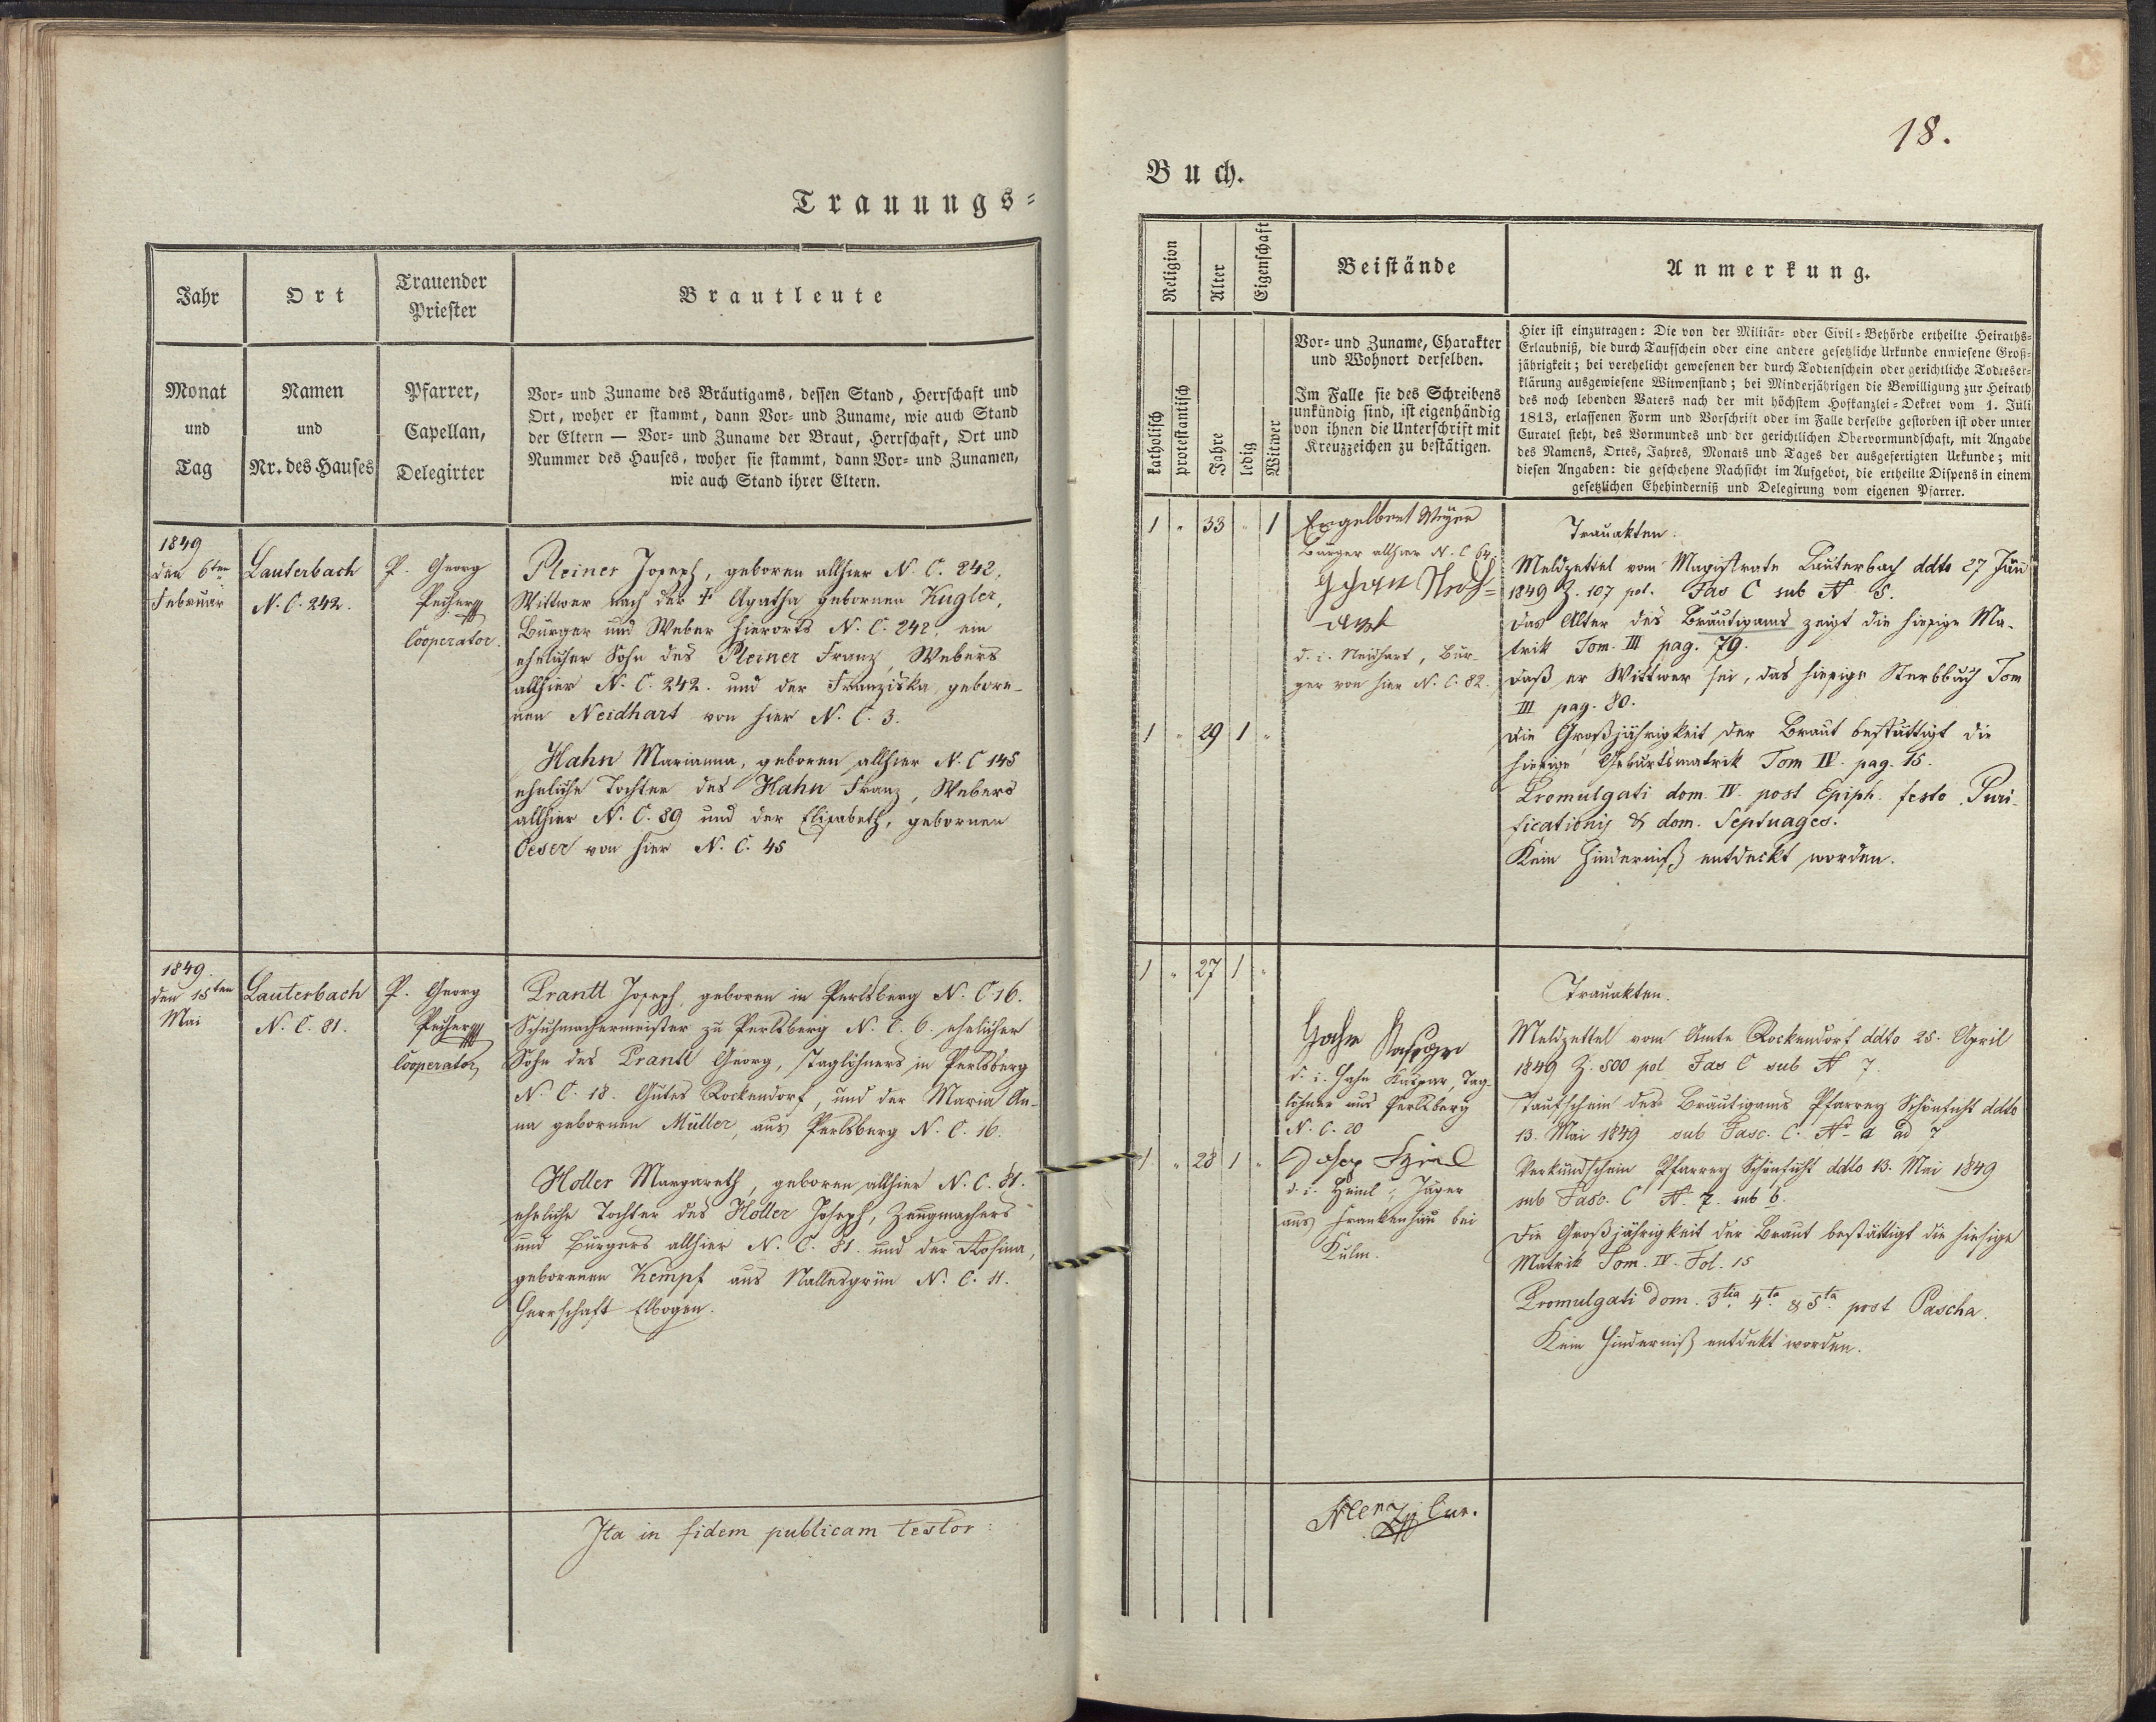 Trauungs-
Jahr
Ort
Trauender
Priester
Brautleute
Monat
und
Tag
Namen
und
Nr. des Hauses
Pfarrer,
Capellan,
Delegirter
Vor- und Zuname des Bräutigams, dessen Stand, Herrschaft und
Ort, woher er stammt, dann Vor- und Zuname, wie auch Stand
der Eltern — Vor- und Zuname der Braut, Herrschaft, Ort und
Nummer des Hauses, woher sie stammt, dann Vor- und Zunamen,
wie auch Stand ihrer Eltern.
1849
den 6ten
Februar
Lauterbach
N. C. 242.
P. Georg
Pecher
Cooperator.
Pleiner Joseph, geboren allhier N. C. 242,
Wittwer nach der † Agatha gebornen Kugler,
Bürger und Weber hierorts N. C. 242. ein
ehelicher Sohn des Pleiner Franz, Webers
allhier N. C. 242. und der Franziska, gebore-
nen Neidhart von hier N. C. 3.
Hahn Marianna, geboren allhier N. C 145
eheliche Tochter des Hahn Franz, Webers
allhier N. C. 89 und der Elisabeth, gebornen
Oeser von hier N. C. 45
1849.
den 15ten
Mai
Lauterbach
N. C. 81.
P. Georg
Pecher
Cooperator
Prantl Joseph, geboren in Perlsberg N. C 16.
Schuhmachermeister zu Perlsberg N. C. 6. ehelicher
Sohn des Prantl Georg, Taglöhners in Perlsberg
N. C. 18. Gutes Rockendorf, und der Maria An-
na gebornen Müller, aus Perlsberg N. C. 16.
Holler Margareth, geboren allhier N. C. 81.
eheliche Tochter des Holler Joseph, Zeugmachers
und Bürgers allhier N. C. 81. und der Rosina,
geborenen Kempf aus Nallesgrün N. C. 11.
Herrschaft Elbogen.
Ita in fidem publicam testor:
18.
Buch.
Religion
Alter
Eigenschaft
Beistände
Anmerkung.
katholisch
protestantisch
Jahre
ledig
Witwer
Vor- und Zuname, Charakter
und Wohnort derselben.
Im Falle sie des Schreibens
unkündig sind, ist eigenhändig
von ihnen die Unterschrift mit
Kreuzzeichen zu bestätigen.
Hier ist einzutragen: Die von der Militär- oder Civil-Behörde ertheilte Heiraths-
Erlaubniß, die durch Taufschein oder eine andere gesetzliche Urkunde erwiesene Groß-
jährigkeit; bei verehelicht gewesenen der durch Todtenschein oder gerichtliche Todeser-
klärung ausgewiesene Witwenstand; bei Minderjährigen die Bewilligung zur Heirath
des noch lebenden Vaters nach der mit höchstem Hofkanzlei-Dekret vom 1. Juli
1813, erlassenen Form und Vorschrift oder im Falle derselbe gestorben ist oder unter
Curatel steht, des Vormundes und der gerichtlichen Obervormundschaft, mit Angabe
des Namens, Ortes, Jahres, Monats und Tages der ausgefertigten Urkunde; mit
diesen Angaben: die geschehene Nachsicht im Aufgebot, die ertheilte Dispens in einem
gesetzlichen Ehehinderniß und Delegirung vom eigenen Pfarrer.
1 " 33 " 1
Engelbert Meyer
Bürger allhier N. C 64.
d. i. Neidhart, Bür-
ger von hier N. C. 82.
1 " 29 1 "
Trauakten:
Meldzettel vom Magistrate Lauterbach ddto 27 Jän
1849 Z. 107 pol. Fas C sub N 5.
das Alter des Bräutigams zeigt die hiesige Ma-
trik Tom. III pag. 79.
daß er Wittwer sei, das hiesige Sterbbuch Tom
III pag. 80.
die Großjährigkeit der Braut bestättigt die
hiesige Geburtsmatrik Tom IV. pag. 15.
Promulgati dom. IV. post Epiph. festo Puri-
ficationis & dom. Septuages.
Kein Hinderniß entdeckt worden.
1 " 27 1 "
Hahn Kaspar
d. i. Hahn Kaspar, Tag-
löhner aus Perlsberg
N. C. 20
1 " 28 1 "
Josep Heinl
d. i. Heinl, Jäger
aus Frankenhau bei
Kulm.
Trauakten.
Meldzettel vom Amte Rockendorf ddto 25. April
1849 Z. 500 pol Fas C sub N 7.
Taufschein des Bräutigams Pfarrey Schönficht ddto
13. Mai 1849 sub Fasc. C. N a ad 7
Verkündschein Pfarrey Schönficht ddto 13. Mai 1849
sub Fasc. C N. 7. sub b.
die Großjährigkeit der Braut bestättigt die hiesige
Matrik Tom. IV. Fol. 15
Promulgati dom. 3tia 4ta & 5ta post Pascha.
Kein Hinderniß entdekt worden.